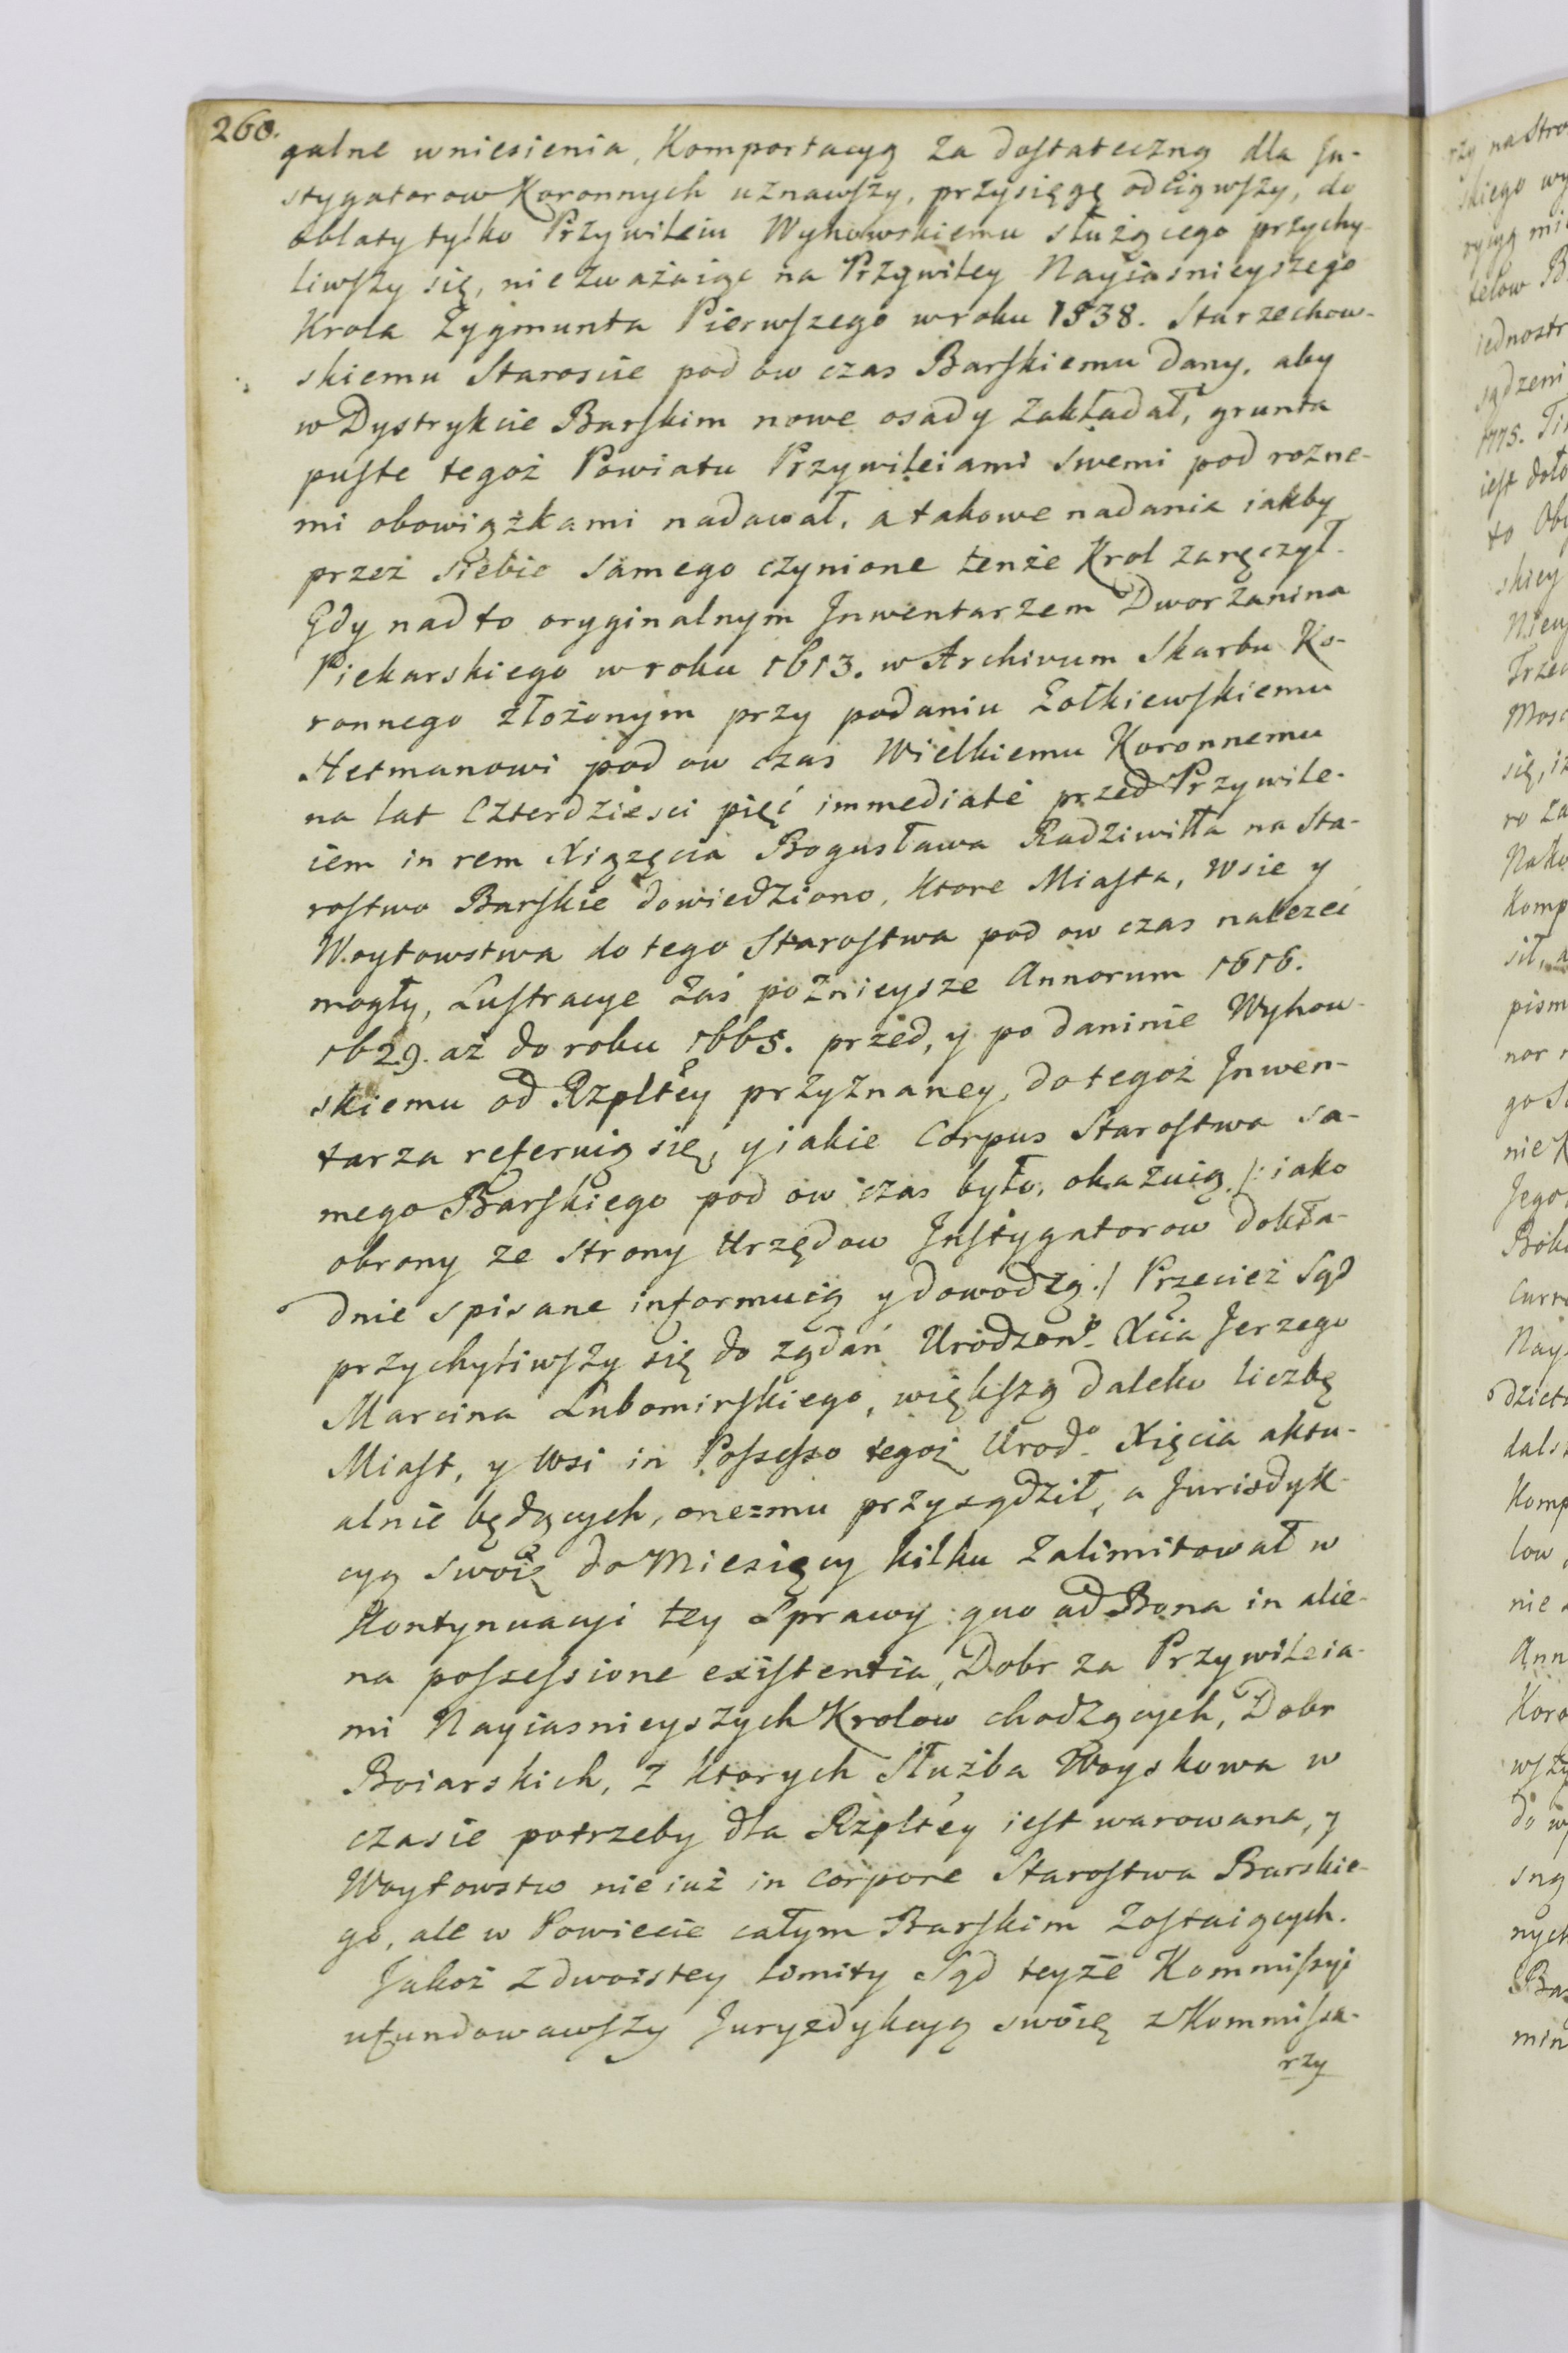 260.
galne wniesienia, Komportacyą za dostateczną dla In-
stygatorow Koronnych uznawszy, przysięgę odciąwszy, do
oblaty tylko Przywileiu Wyhowskiemu służącego przychy-
liwszy się, nie zważaiąc na Przywiley Nayiasnieyszego
Krola Zygmunta Pierwszego w roku 1538. Starzechow-
skiemu Staroscie pod ow czas Barskiemu dany, aby
w Dystrykcie Barskim nowe osady zakładał, grunta
puste tegoż Powiatu Przywileiami swemi pod rozne-
mi obowiązkami nadawał, a takowe nadania iakby
przez siebie samego czynione tenże Krol zaręczył.
Gdy nadto oryginalnym Inwentarzem Dworzanina
Piekarskiego w roku 1613. w Archivum Skarbu Ko-
ronnego złożonym przy podaniu Żołkiewskiemu
Hetmanowi pod ow czas Wielkiemu Koronnemu
na lat Czterdziesci pięć immediate przed Przywile-
iem in rem Xiążęcia Bogusława Radziwiłła na Sta-
rostwo Barskie dowiedziono, ktore Miasta, Wsie y
Woytowstwa do tego Starostwa pod ow czas należeć
mogły, Lustracye zaś poznieysze Annorum 1616.
1629. aż do roku 1665. przed, y po daninie Wyhow-
skiemu od Rzpltey przyznaney, do tegoż Inwen-
tarza referuią się, y iakie Corpus Starostwa sa-
mego Barskiego pod ow czas było, okazuią /: iako
obrony ze strony Urzędow Instygatorow dokła-
dnie spisane informuią y dowodzą :/ Przecież Sąd
przychyliwszy się do żądań Urodzono Xcia Jerzego
Marcina Lubomirskiego, większą daleko liczbę
Miast, y Wsi in Possesso tegoż Urodo Xięcia aktu-
alnie będących, onemu przysądził, a Jurisdyk-
cyą swoię do Miesięcy kilku zalimitował w
Kontynuacyi tey Sprawy quo ad Bona in alie-
na possessione existentia, Dobr za Przywileia-
mi Nayiasnieyszych Krolow chodzących, Dobr
Boiarskich, z ktorych Służba Woyskowa w
czasie potrzeby dla Rzpltey iest warowana, y
Woytowstw nie iuż in corpore Starostwa Barskie-
go, ale w Powiecie całym Barskim zostaiących.
Jakoż z dwoistey limity Sąd teyże Kommissyi
ufundowawszy Juryzdykcyą swoię z Kommissa-
rzy